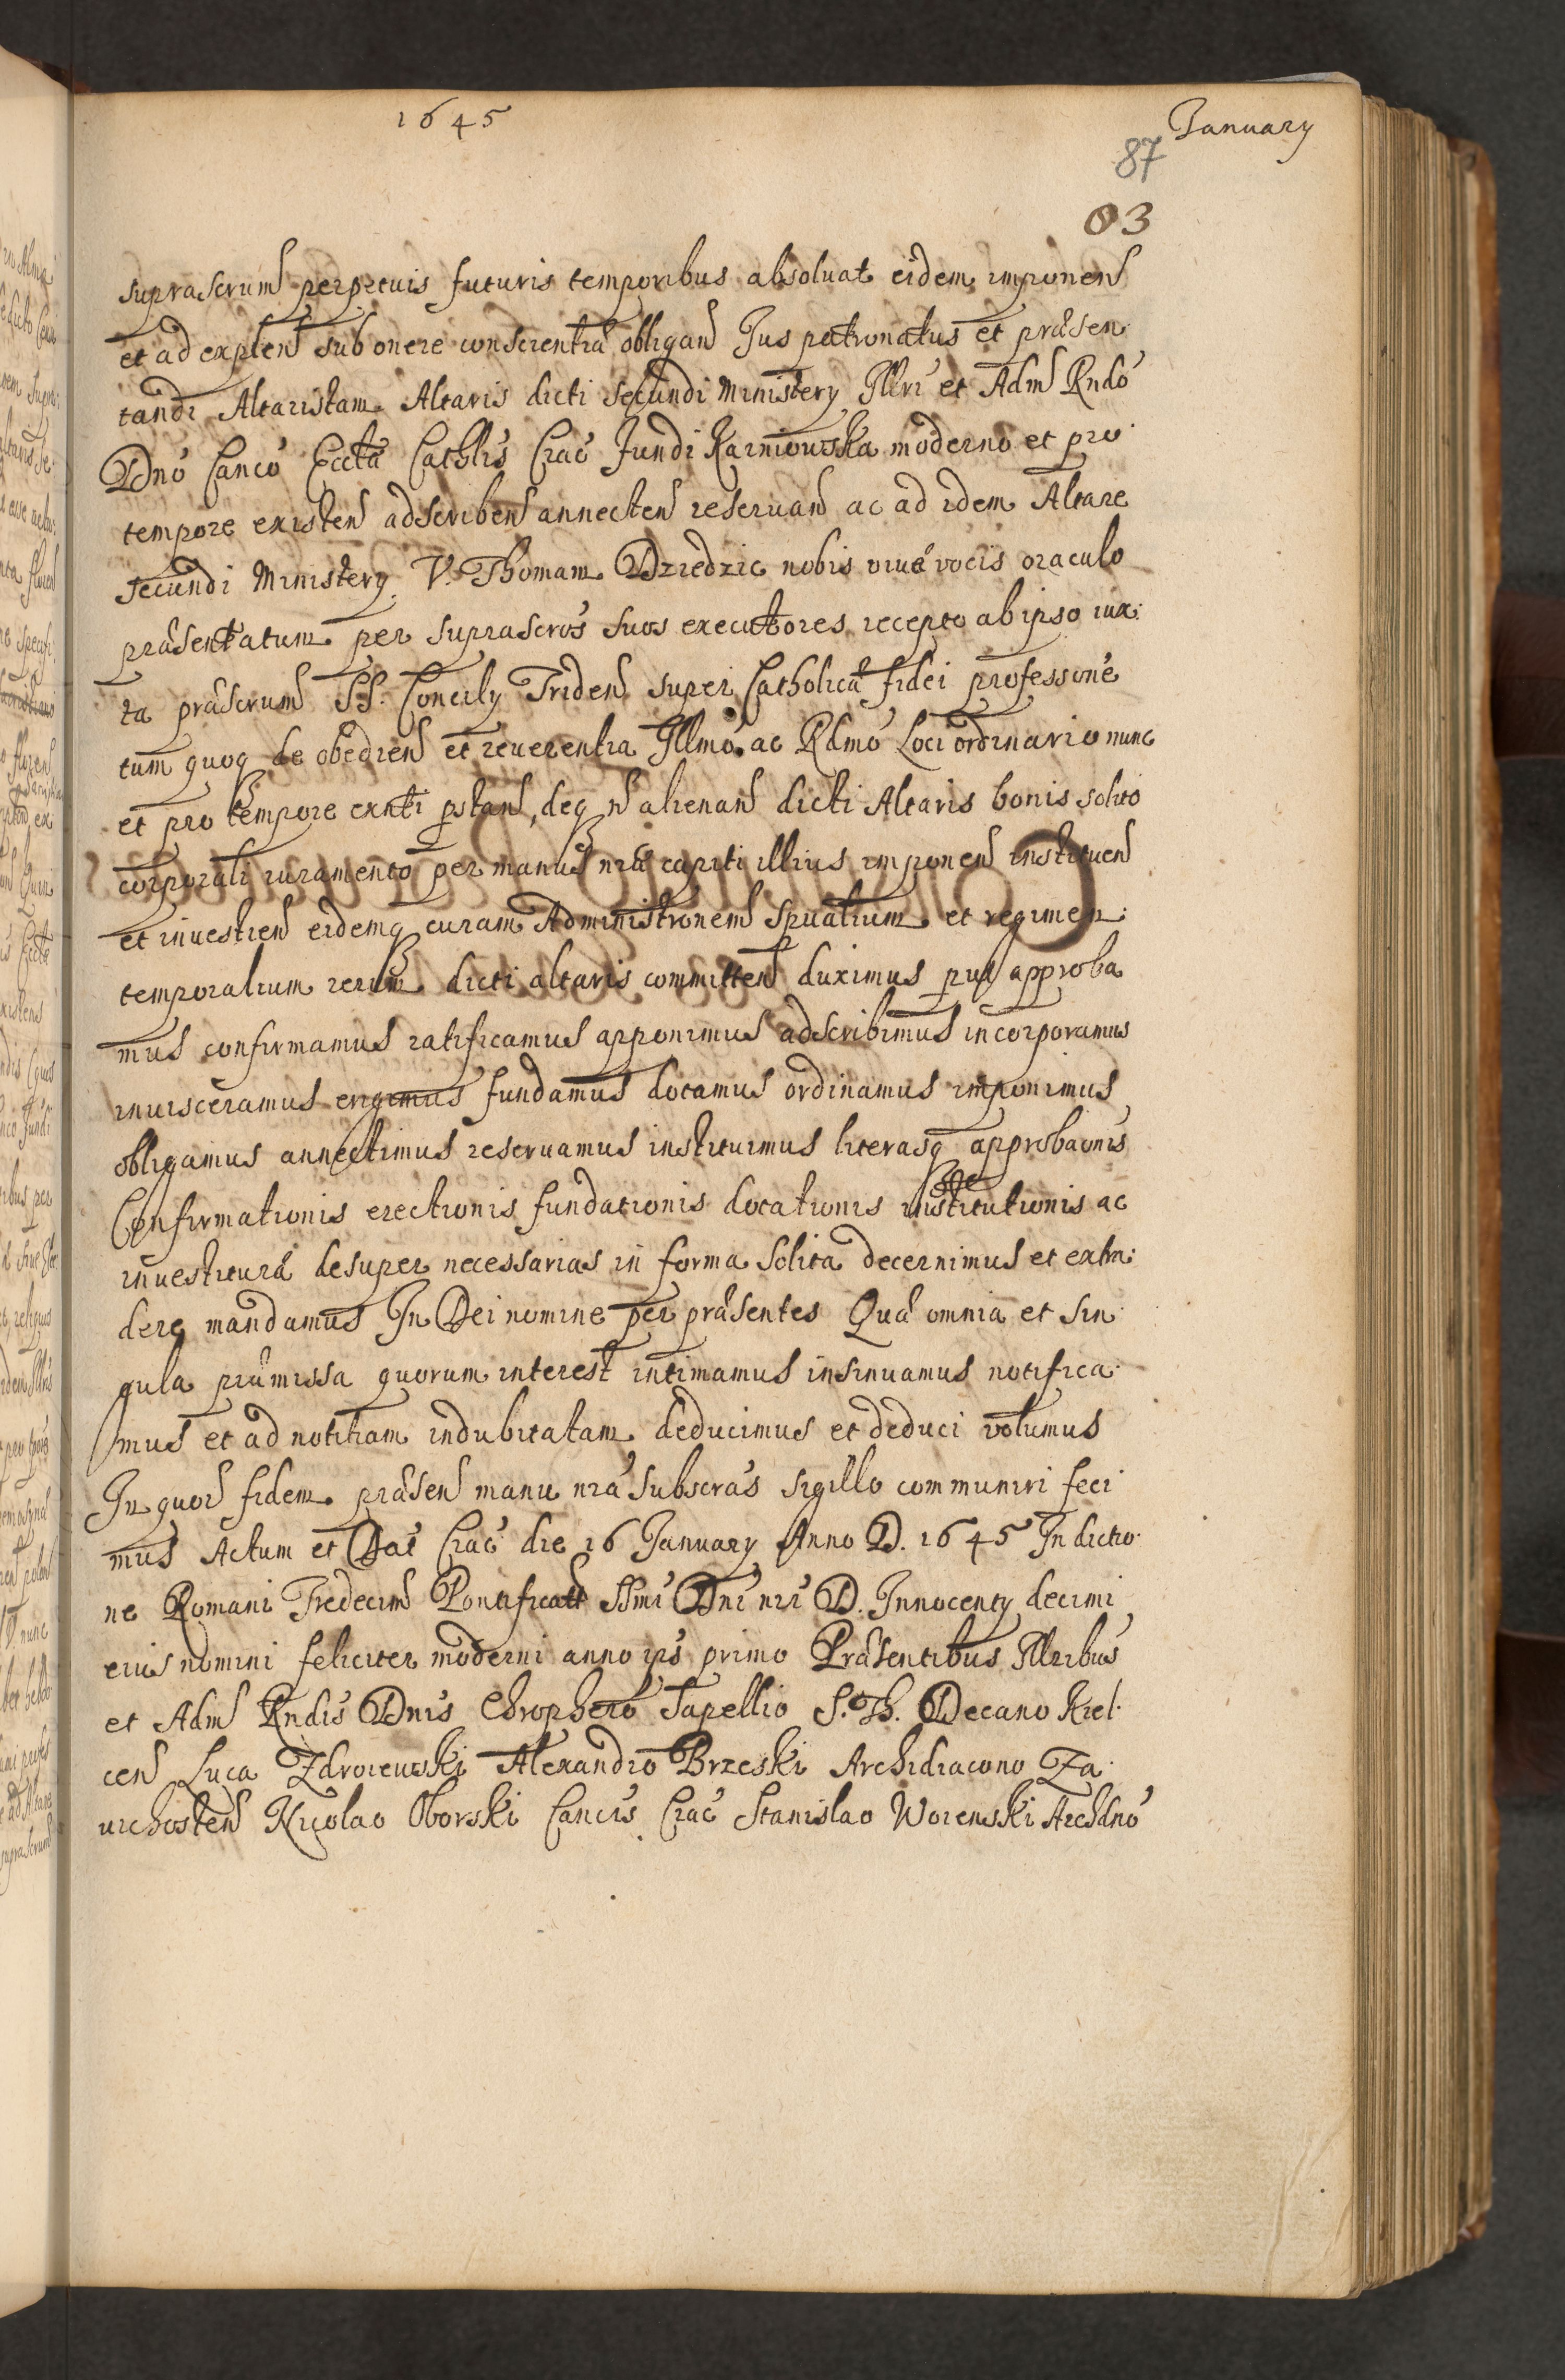 1645
January
87
83
suprascrum perpetuis futuris temporibus absoluat eidem imponen
et ad explen sub onere conscientiæ obligan Jus patronatus et præsen
tandi Altaristam Altaris dicti secundi Ministery Illri et Adm Rndo
Dno Canco Ecctæ Cathlis Crac fundi Karniowska moderno et pro
tempore existen adscriben annecten reseruan ac ad idem Altare
secundi Ministery V. Thomam Dziedzic nobis viuæ vocis oraculo
præsentatum per suprascros suos executores recepto ab ipso iux
ta præscrum SS. Concily Triden super Catholicæ fidei professione
tum quoq de obedien et reuerentia Illmo ac Rdmo Loci ordinario nunc
et pro tempore exnti pstan, deq n alienan dicti Altaris bonis solito
corporali iuramento per manus nræ capiti illius imponen instituen
et inuestien eidemq curam Administronem spualium et regimen
temporalium rerum dicti altaris committen duximus put approba
mus confirmamus ratificamus apponimus adscribimus incorporamus
inuisceramus erigimus fundamus dotamus ordinamus imponimus
obligamus annectimus reseruamus instituimus literasq approbaonis
Confirmationis erectionis fundationis dotationis institutionis ac
inuestituræ desuper necessarias in forma solita decernimus et extra
dere mandamus In Dei nomine per præsentes Quæ omnia et sin
gula præmissa quorum interest intimamus insinuamus notifica
mus et ad notitiam indubitatam deducimus et deduci volumus
In quor fidem præsen manu nra subscras sigillo communiri feci
mus Actum et Dat Crac die 16 January Anno D. 1645 Indictio
ne Romani Tredecim Pontificatt SSmi Dni nri D. Innocenty decimi
eius nomini feliciter moderni anno ips primo Præsentibus Illribus
et Adm Rndis Dnis Chrophero Sapellio S. Th. Decano Kiel
cen Luca Zdroiewski Alexandro Brzeski Archidiacono Za
uichosten Nicolao Oborski Cancis Crac Stanislao Woienski Archdno